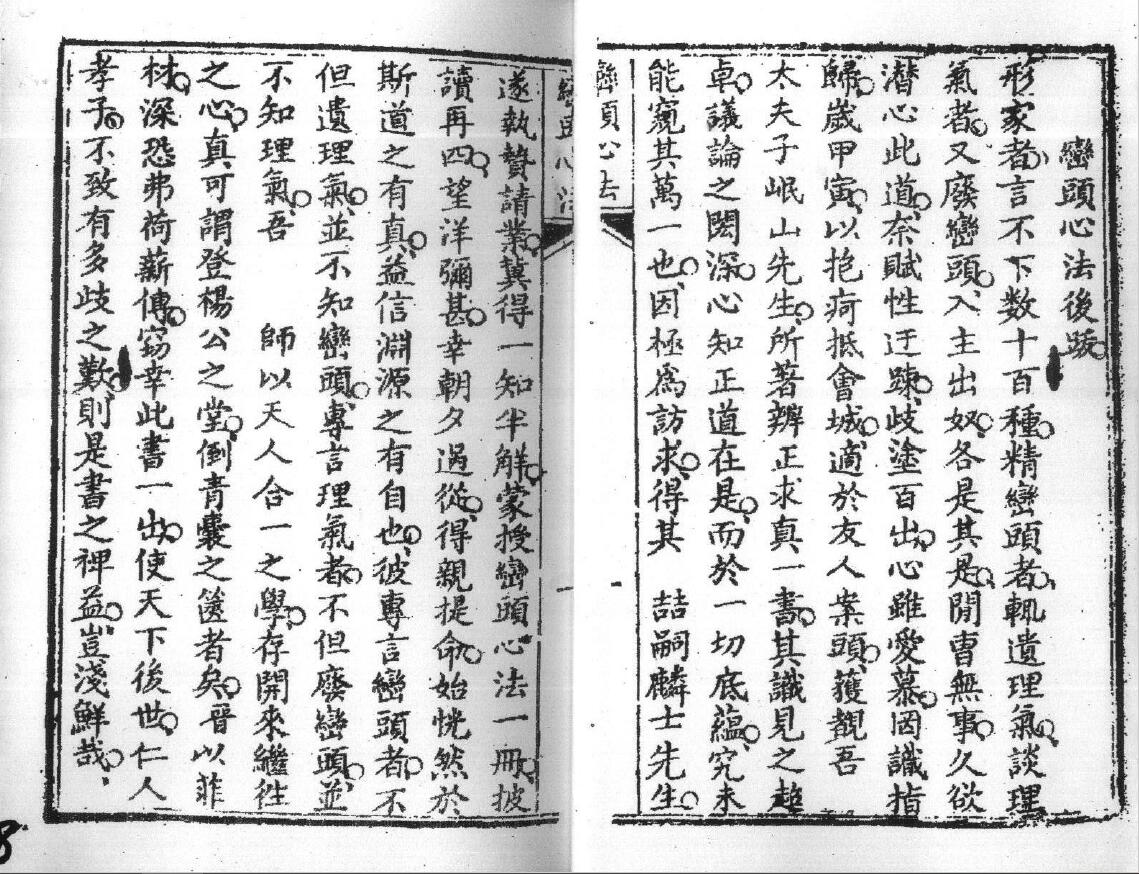 巒頭心法後跋
形家者言不下数十百種精巒頭者輒遺理氣談理
氣者又廢巒頭入主出奴各是其是閒曹無事久欲
潜心此道奈賦性迂踈歧塗百出心雖愛慕罔識指
歸歲甲寅以抱疴抵會城適於友人案頭獲覩吾
太夫子岷山先生所著辨正求真一書其識見之超
卓議論之閎深心知正道在是而於一切底蘊究未
能窺其萬一也因極爲訪求得其 喆嗣麟士先生
巒頭心法
遂執贄請業冀得一知半解蒙授巒頭心法一冊披
讀再四望洋彌甚幸朝夕過從得親提命始恍然於
斯道之有真益信淵源之有自也彼專言巒頭者不
但遺理氣並不知巒頭專言理氣者不但廢巒頭並
不知理氣吾 師以天人合一之學存開來繼往
之心真可謂登楊公之堂倒青囊之篋者矣晉以菲
材深恐弗荷薪傳窃幸此書一出使天下後世仁人
孝子不致有多歧之歎則是書之裨益豈淺鮮哉
8